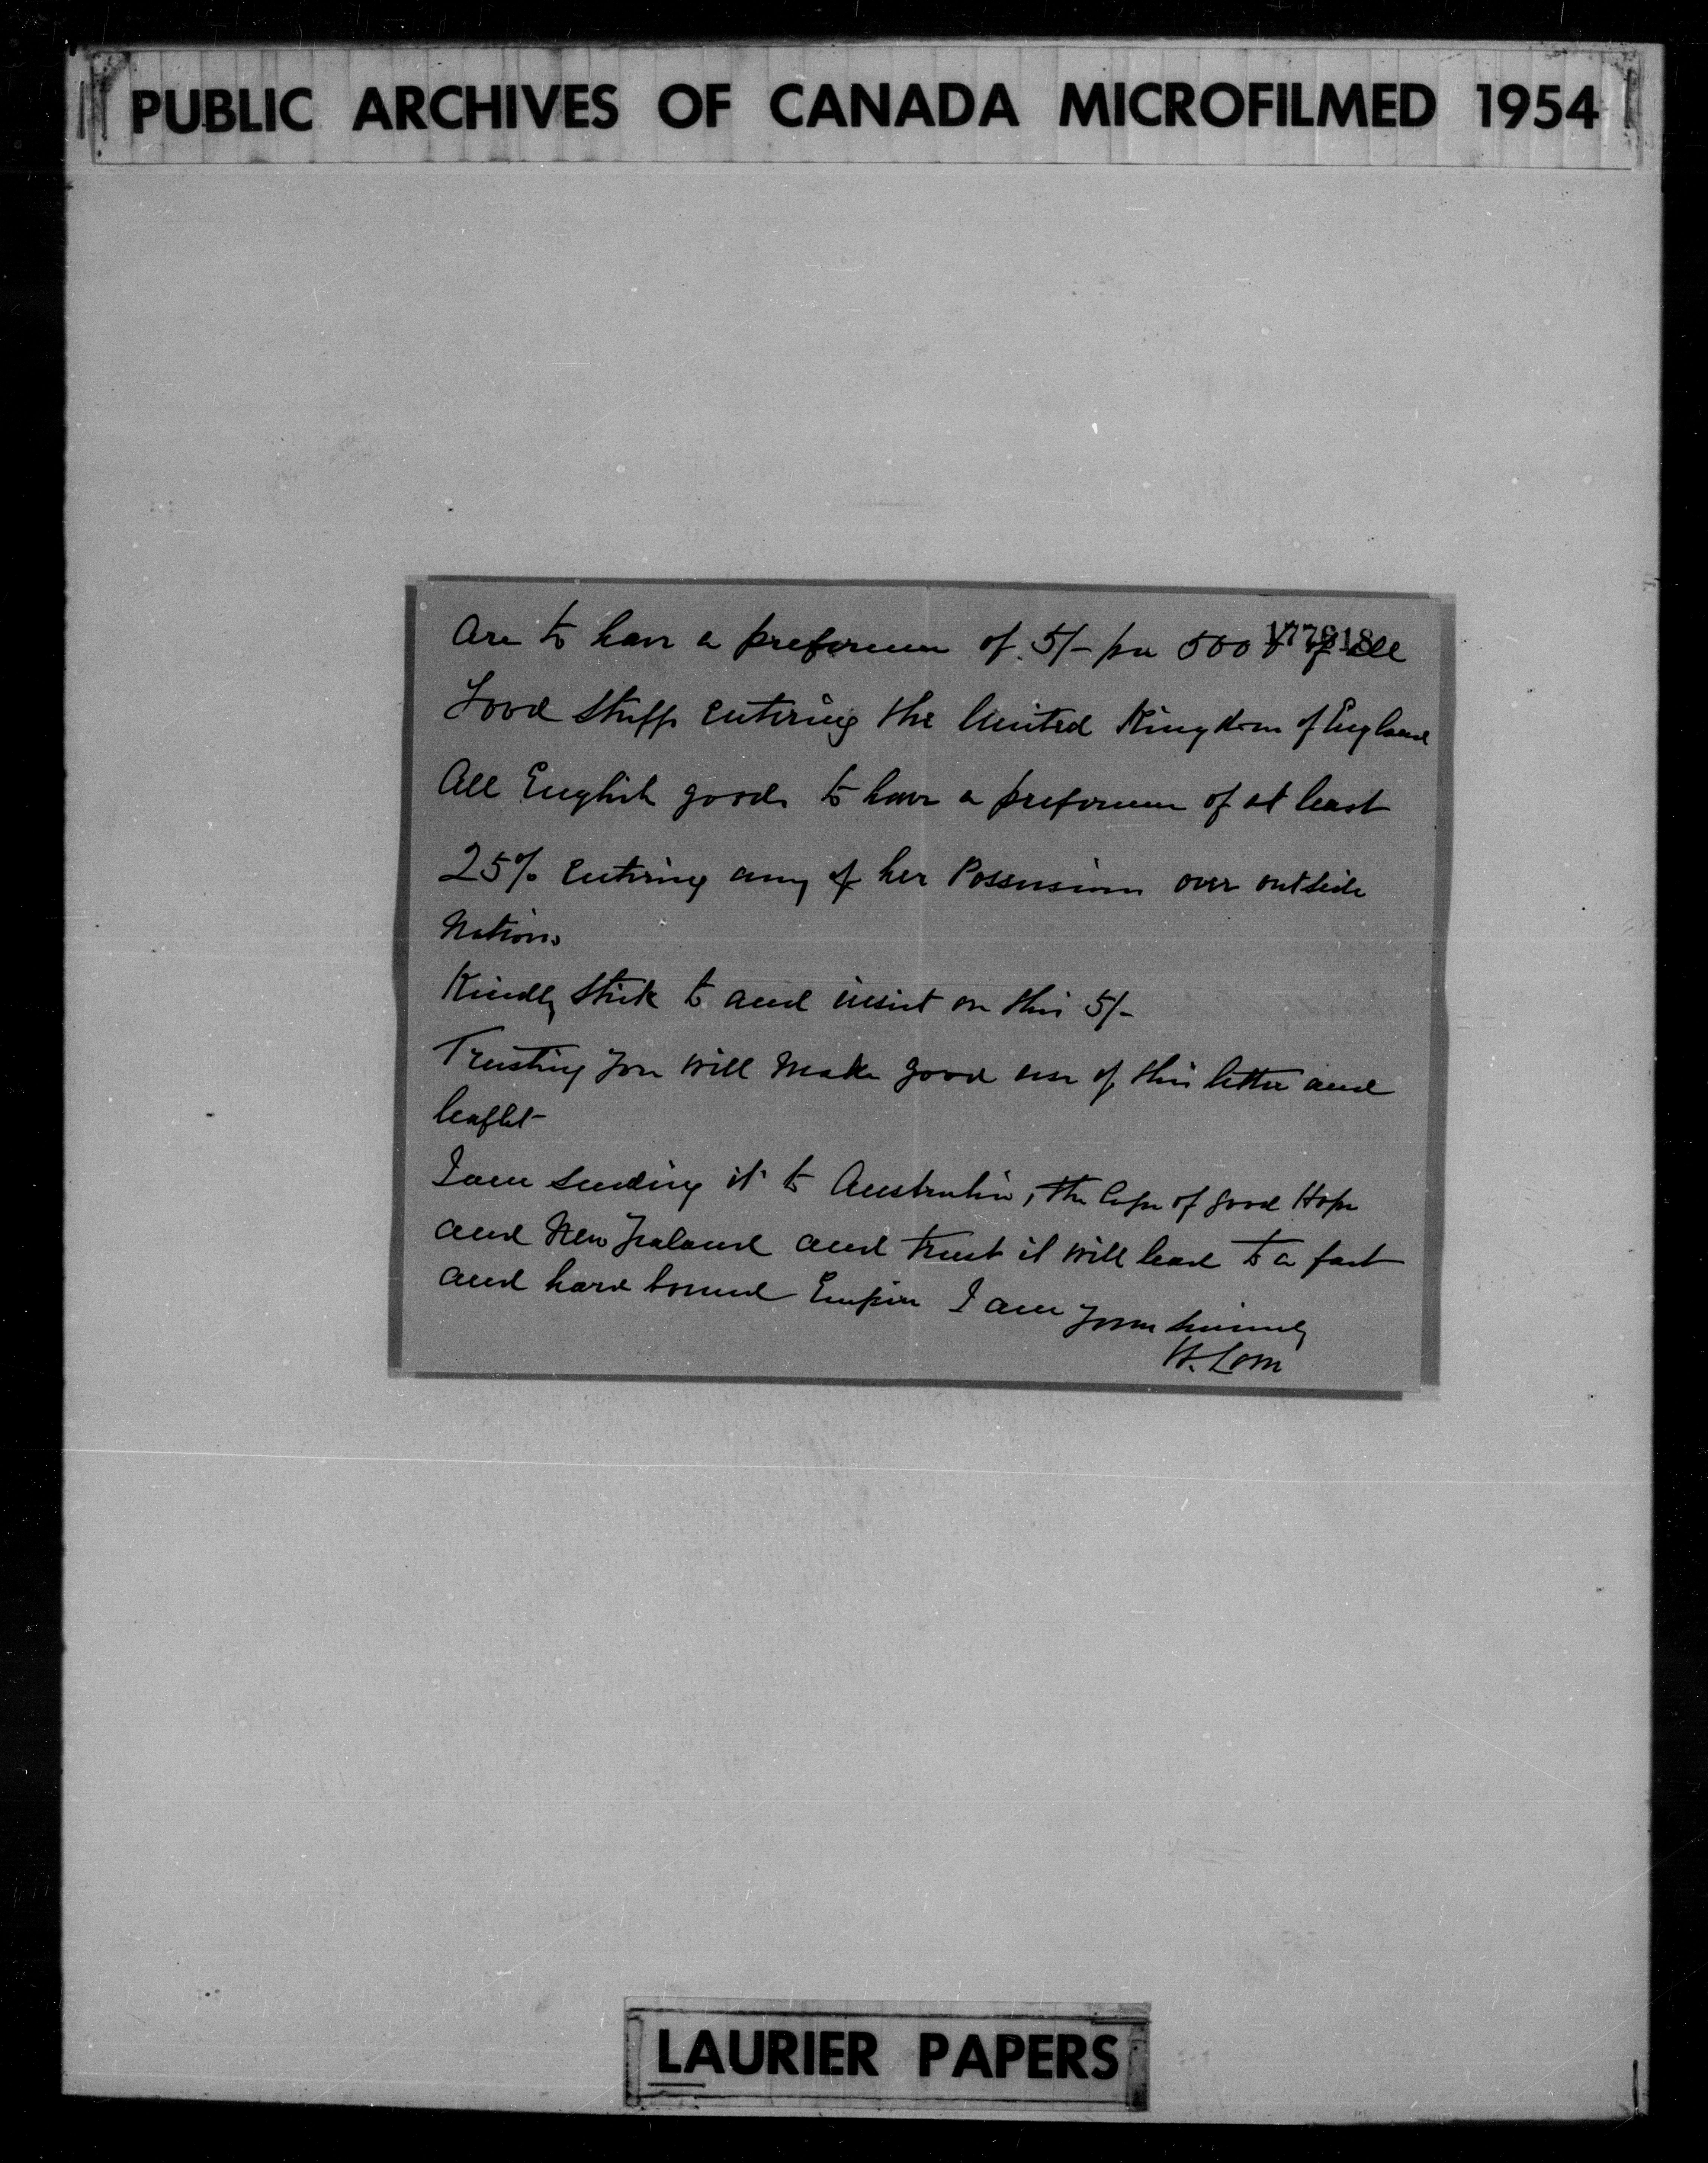 PUBLIC ARCHIVES OF CANADA MICROFILMED 1954
Are to have a preference of 5/- per 500 of all
Food stuffs entering the United Kingdom of England
All English goods to have a preference of at least
25% entering any of her Possessions over outside
Nations
Kindly stick to and insist on this 5/-
Trusting you will make good use of this letter and
leaflet
I am sending it to Australia, the Cape of good Hope
and New Zealand and trust it will lead to a fast
and hard bound Empire I am yours sincerely
LAURIER PAPERS